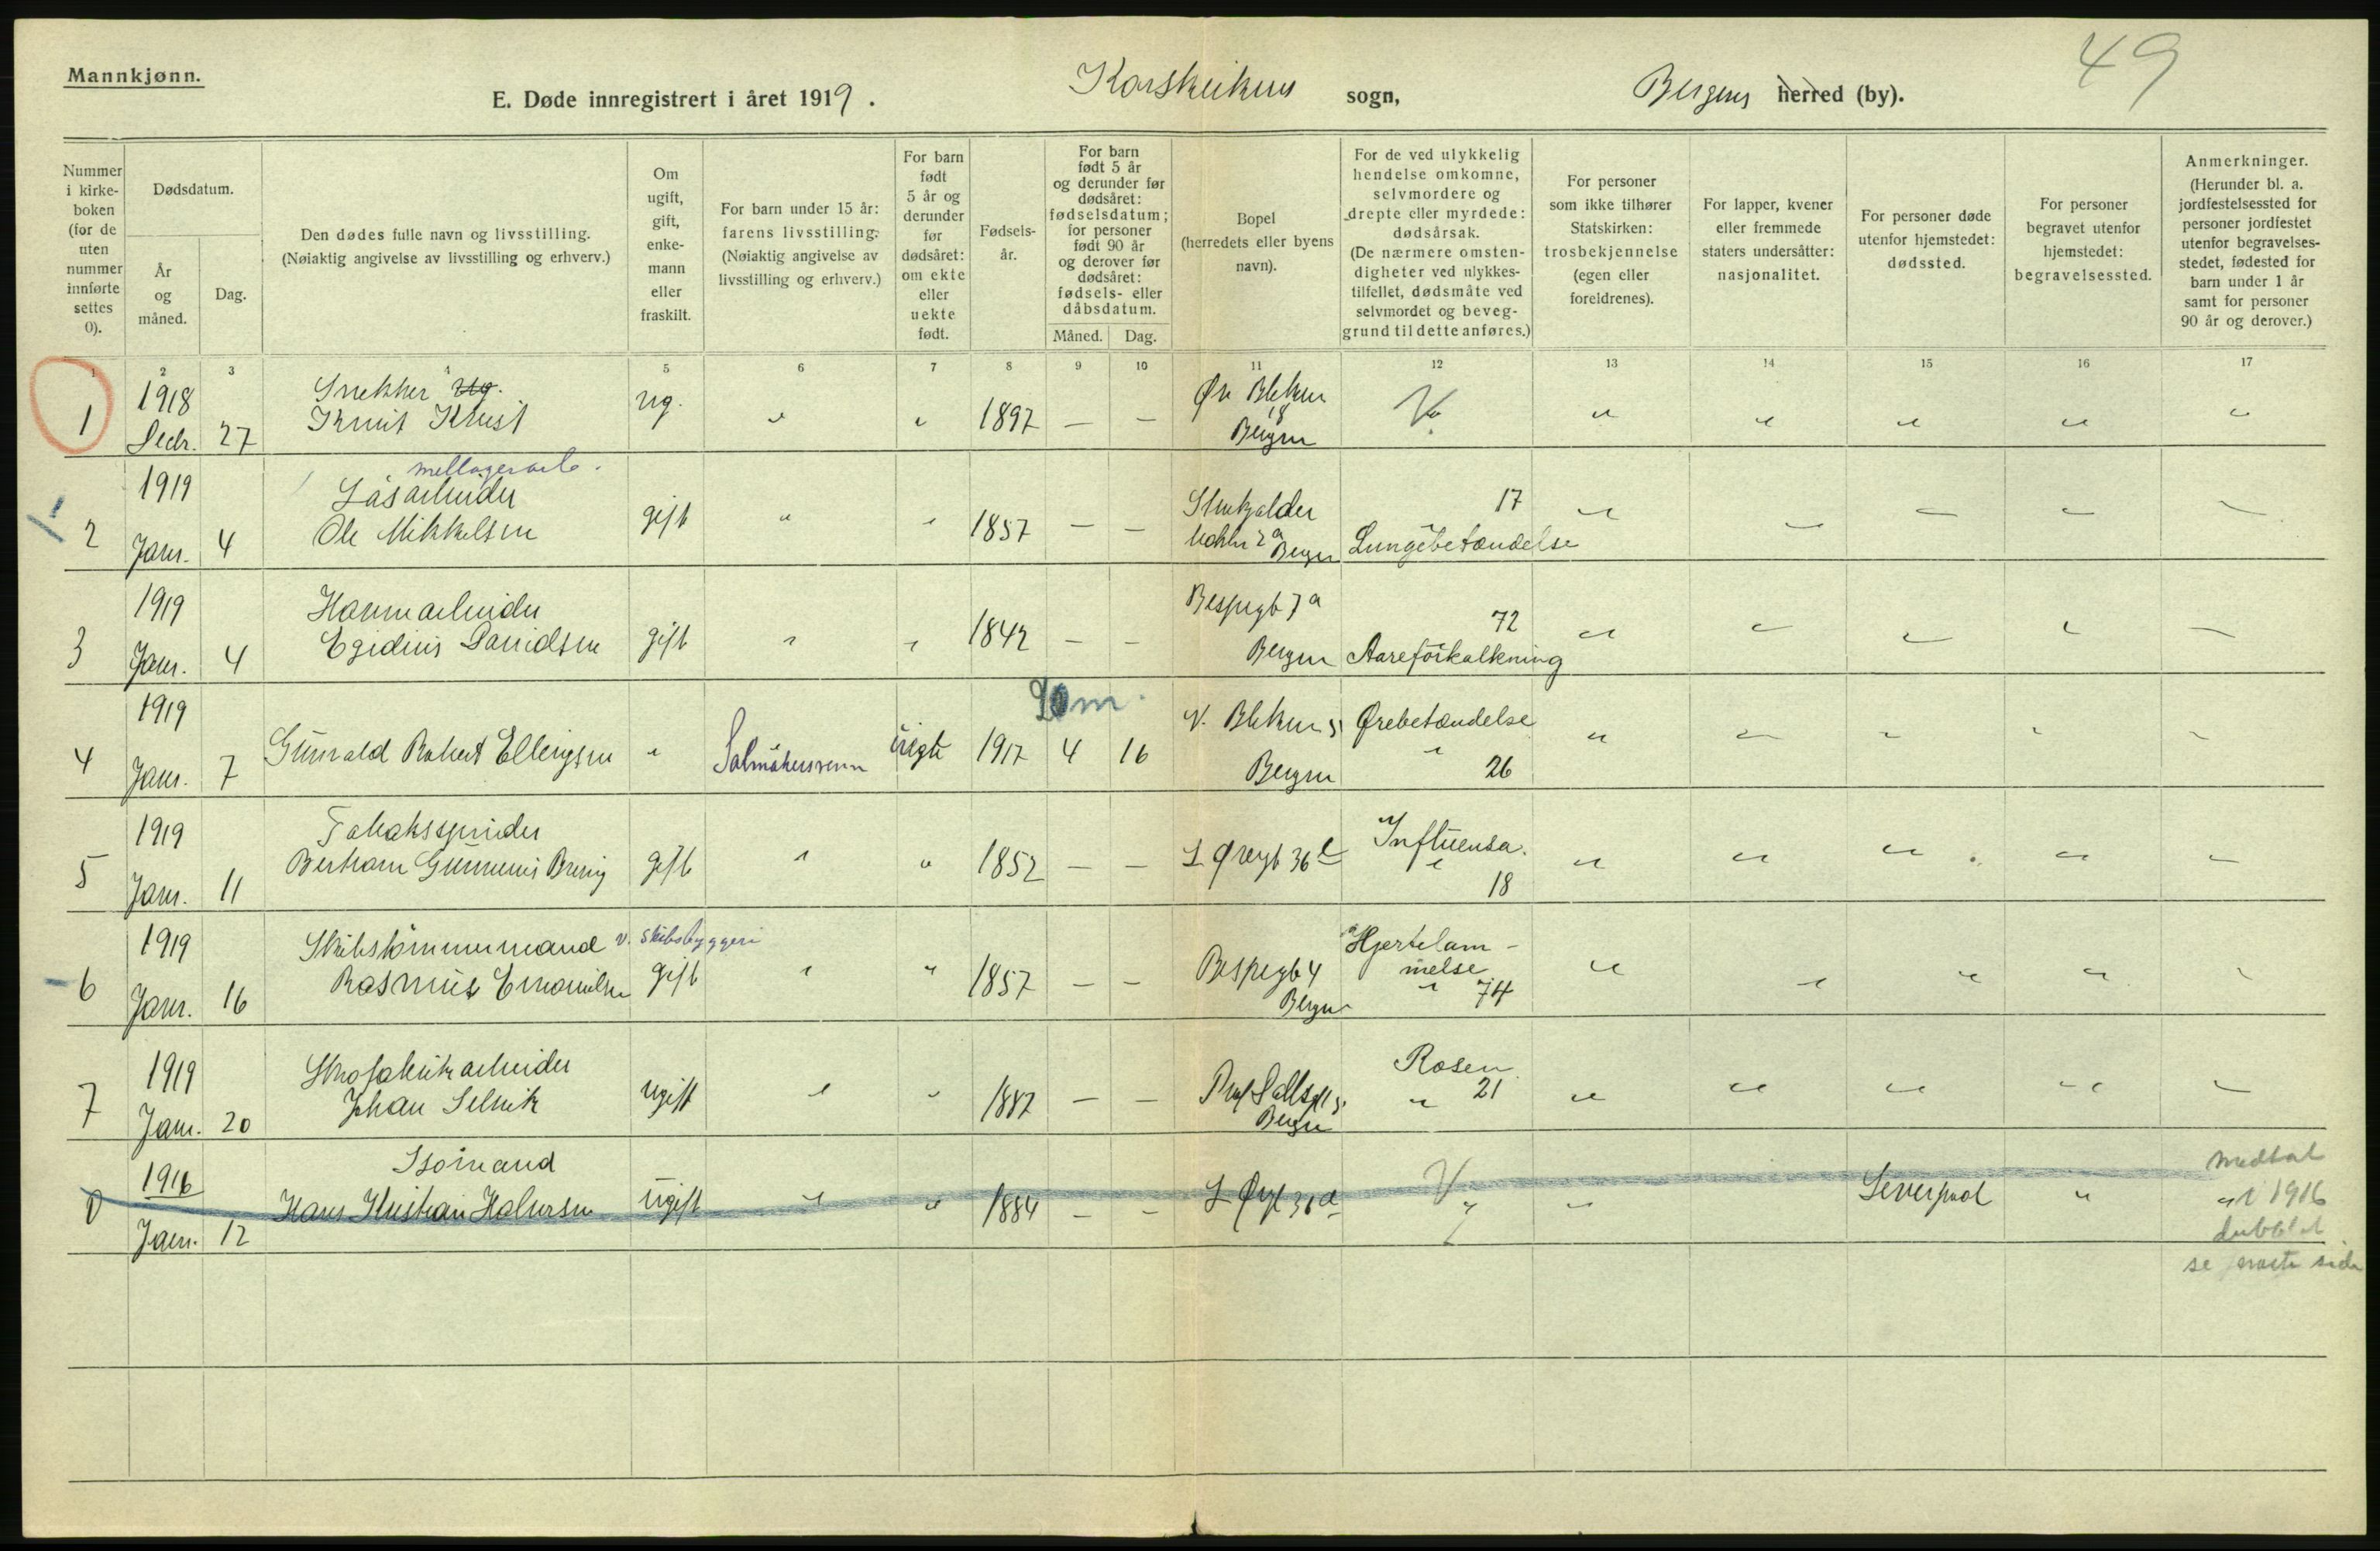 Mannkjønn.
49
E. Døde innregistrert i året 1919.
Korskirkens sogn,
Bergens herred (by).
Nummer i kirkeboken (for de uten nummer innførte settes 0).
Dødsdatum.
År og måned.
Dag.
Den dødes fulle navn og livsstilling.
(Nøiaktig angivelse av livsstilling og erhverv.)
Om ugift, gift, enkemann eller fraskilt.
For barn under 15 år: farens livsstilling.
(Nøiaktig angivelse av livsstilling og erhverv.)
For barn født 5 år og derunder før dødsåret: om ekte eller uekte født.
Fødselsår.
For barn født 5 år og derunder før dødsåret: fødselsdatum; for personer født 90 år og derover før dødsåret: fødsels- eller dåbsdatum.
Måned.
Dag.
Bopel
(herredets eller byens navn).
For de ved ulykkelig hendelse omkomne, selvmordere og drepte eller myrdede: dødsårsak.
(De nærmere omstendigheter ved ulykkestilfellet, dødsmåte ved selvmordet og beveggrund til dette anføres.)
For personer som ikke tilhører Statskirken: trosbekjennelse (egen eller foreldrenes).
For lapper, kvener eller fremmede staters undersåtter: nasjonalitet.
For personer døde utenfor hjemstedet: dødssted.
For personer begravet utenfor hjemstedet: begravelsessted.
Anmerkninger.
(Herunder bl. a. jordfestelsessted for personer jordfestet utenfor begravelsesstedet, fødested for barn under 1 år samt for personer 90 år og derover.)
1 2 3 4 5 6 7 8 9 10 11 12 13 14 15 16 17
1 1918 Decbr. 27 Snekker Ug. Knut Knust ug. " " 1897 — — Øv. Blekev 18 Bergen " " " " " "
2 1919 Janr. 4 Låsarbeider Ole Mikkelsen gift " " 1857 — — Bergen 17 Lungebetændelse " " " " "
3 1919 Janr. 4 Havnearbeider Egidius Davidsen gift " " 1842 — — Bergen 72 Aareforkalkning " " " " "
4 1919 Janr. 7 Gunvald Robert Ellingsen " Salmakersvenn 1917 4 16 20 m. V. Blekev 5 Bergen Ørebetændelse " 26 " " " " "
5 1919 Janr. 11 Tobaksspinder Gunnerius gift " " 1852 — — L Øvregt 36 Influensa. " 18 " " " " "
6 1919 Janr. 16 Skibstømmermand v. skibsbyggeri Rasmus Emanuelsen gift " " 1857 — — 4 Bergen Hjertelammelse " 74 " " " " "
7 1919 Janr. 20 Skofabrikarbeider Johan Selvik ugift " " 1887 — — Bergen Rosen " 21 " " " " "
0 1916 Janr. 12 Sjømand Hans Kristian Halvorsen ugift " " 1884 — — L Øvgt 36 " " Liverpool " medtat i 1916 dubblet
se næste side